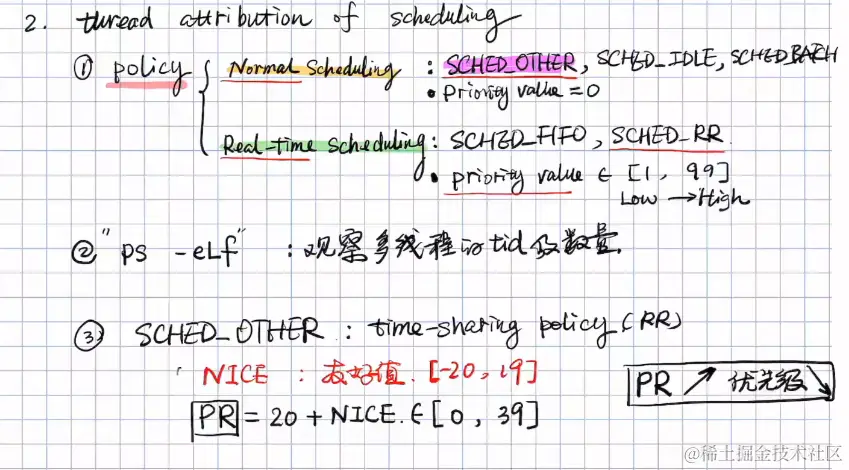 2. thread attribution of scheduling
① policy { Normal Scheduling : SCHED_OTHER, SCHED_IDLE, SCHED_BACH
• priority value = 0
Real-time Scheduling : SCHED_FIFO, SCHED_RR
• priority value ∈ [1, 99]
Low → High
② "ps -eLf" : 观察多线程的tid及数量
③ SCHED_OTHER : time-sharing policy (RR)
NICE : 友好值. [-20, 19]
PR = 20 + NICE. ∈ [0, 39]
PR ↗ 优先级 ↘
@稀土掘金技术社区